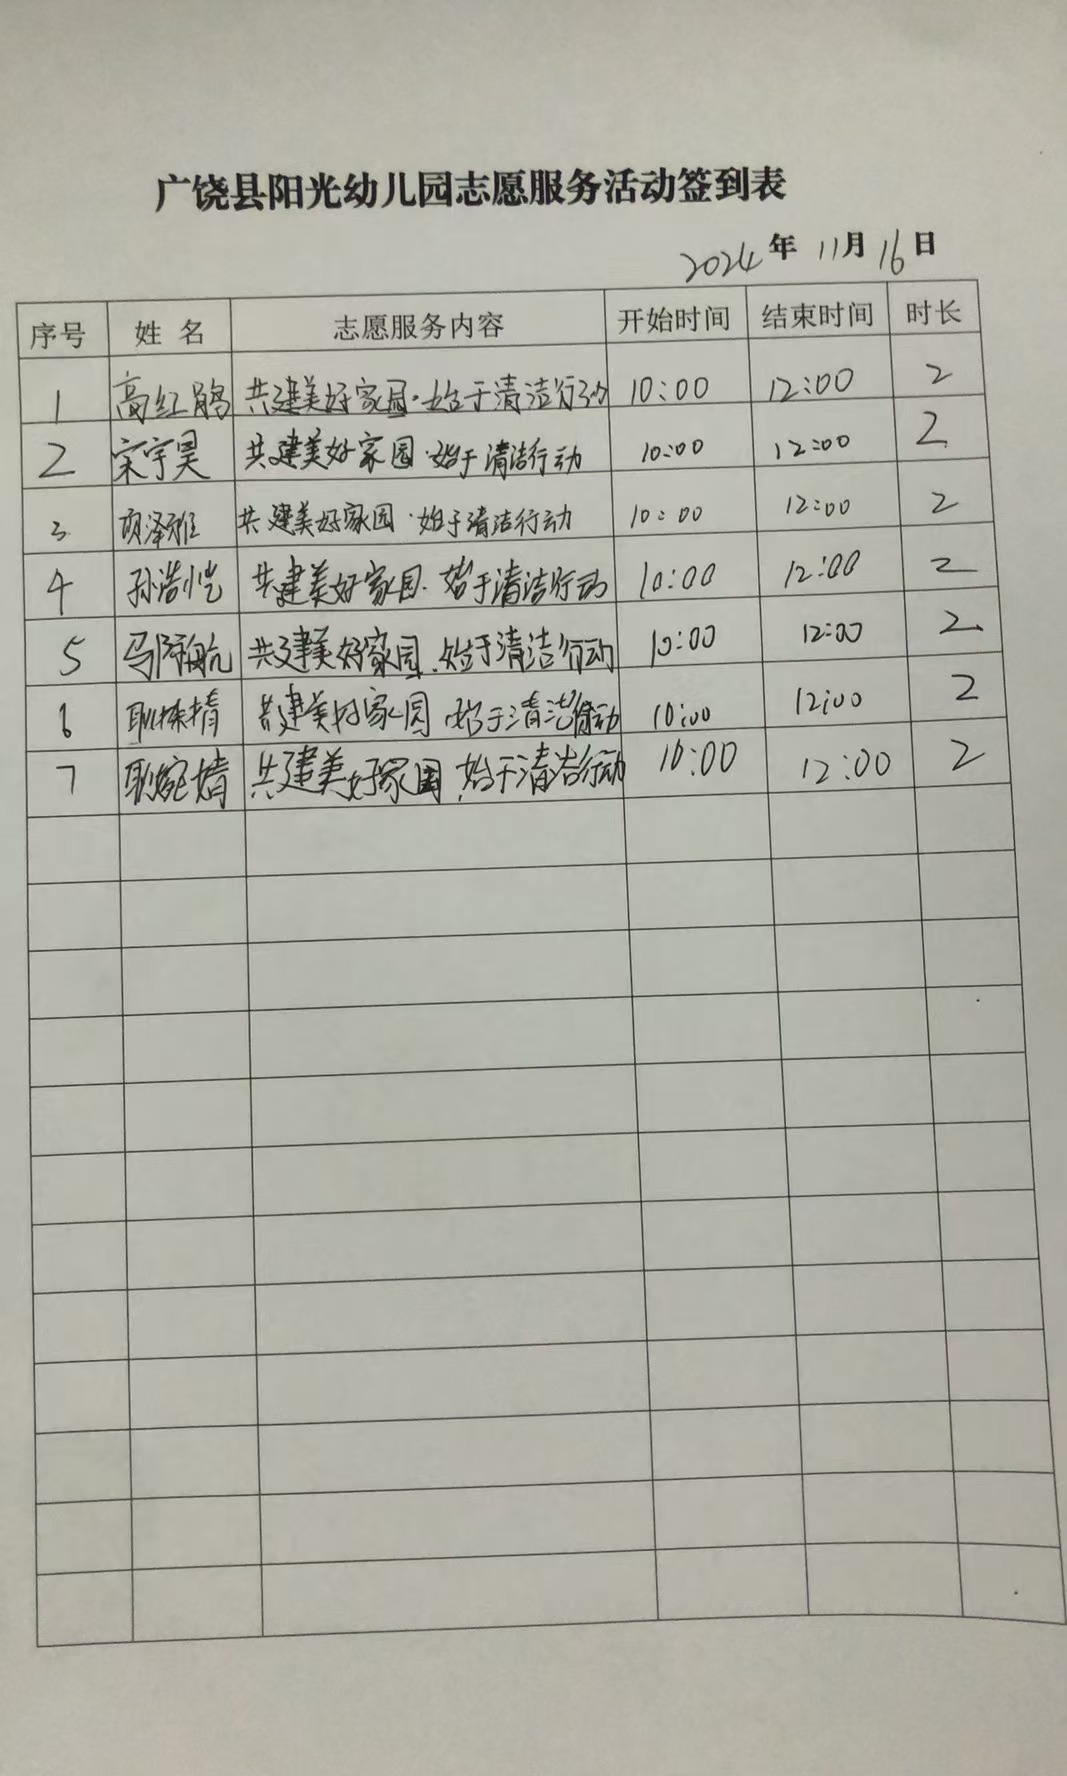 广饶县阳光幼儿园志愿服务活动签到表
2024年11月16日
序号 姓名 志愿服务内容 开始时间 结束时间 时长
1 高红鹃 共建美好家园·始于清洁行动 10:00 12:00 2
2 宋宇昊 共建美好家园·始于清洁行动 10:00 12:00 2
3 泽雅 共建美好家园·始于清洁行动 10:00 12:00 2
4 孙浩恺 共建美好家园·始于清洁行动 10:00 12:00 2
5 马泽航 共建美好家园·始于清洁行动 10:00 12:00 2
6 耿 共建美好家园·始于清洁行动 10:00 12:00 2
7 耿婧 共建美好家园·始于清洁行动 10:00 12:00 2